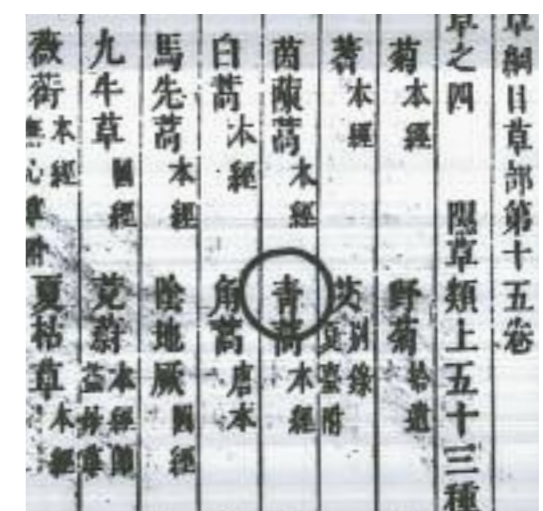 草綱目草部第十五卷
草之四 隰草類上五十三種
菊本經 野菊拾遺
蓍本經 艾別錄夏臺附
茵蔯蒿本經 青蒿本經
白蒿本經 角蒿唐本
馬先蒿本經 陰地厥圖經
九牛草圖經 茺蔚本經即益母草
薇銜本經無心草附 夏枯草本經